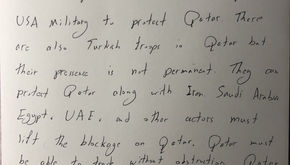 USA military to protect Qatar. There
are also Turkish troops in Qatar but
their pressence is not permanent. They can
protect Qatar along with Iran. Saudi Arabia
Egypt, UAE, and other actors must
lift the blockage on Qatar. Qatar must
be able to trade without obstruction. Qatar